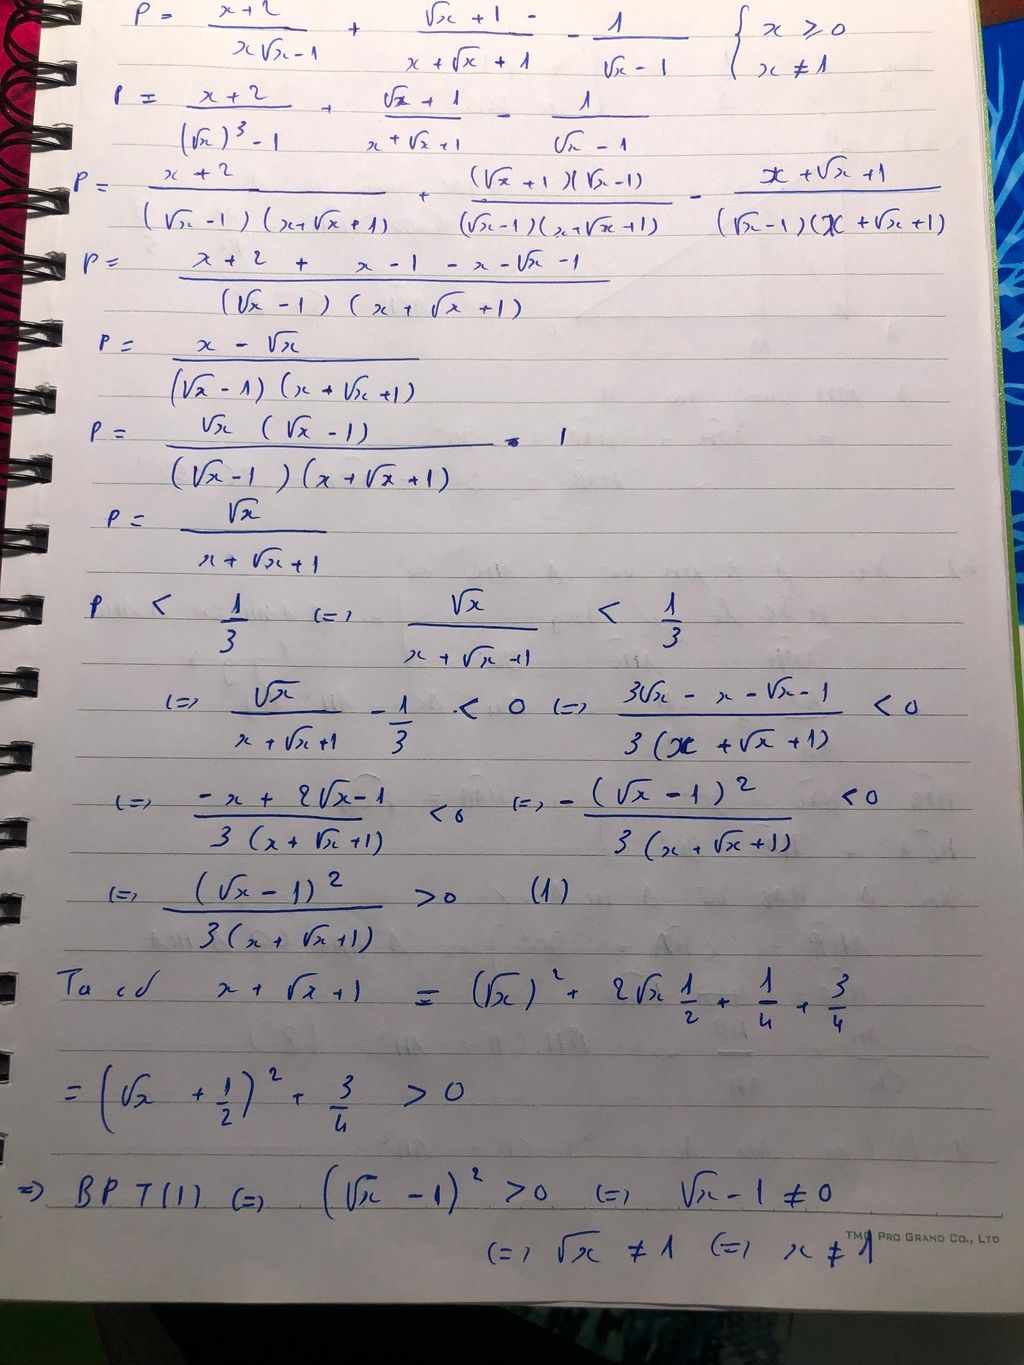 P = (x+2)/(x√x-1) + (√x+1)/(x+√x+1) - 1/(√x-1) { x ⩾ 0
x ≠ 1
P = (x+2)/((√x)³-1) + (√x+1)/(x+√x+1) - 1/(√x-1)
P = (x+2)/((√x-1)(x+√x+1)) + ((√x+1)(√x-1))/((√x-1)(x+√x+1)) - (x+√x+1)/((√x-1)(x+√x+1))
P = (x+2+x-1-x-√x-1)/((√x-1)(x+√x+1))
P = (x-√x)/((√x-1)(x+√x+1))
P = (√x(√x-1))/((√x-1)(x+√x+1))
P = √x/(x+√x+1)
P < 1/3 (=) √x/(x+√x+1) < 1/3
(=) √x/(x+√x+1) - 1/3 < 0 (=) (3√x-x-√x-1)/(3(x+√x+1)) < 0
(=) (-x+2√x-1)/(3(x+√x+1)) < 0 (=) -(√x-1)²/(3(x+√x+1)) < 0
(=) (√x-1)²/(3(x+√x+1)) > 0 (1)
Ta có x+√x+1 = (√x)² + 2√x 1/2 + 1/4 + 3/4
= (√x + 1/2)² + 3/4 > 0
=> BPT(1) (=) (√x-1)² > 0 (=) √x-1 ≠ 0
TMG PRO GRAND CO., LTD
(=) √x ≠ 1 (=) x ≠ 1